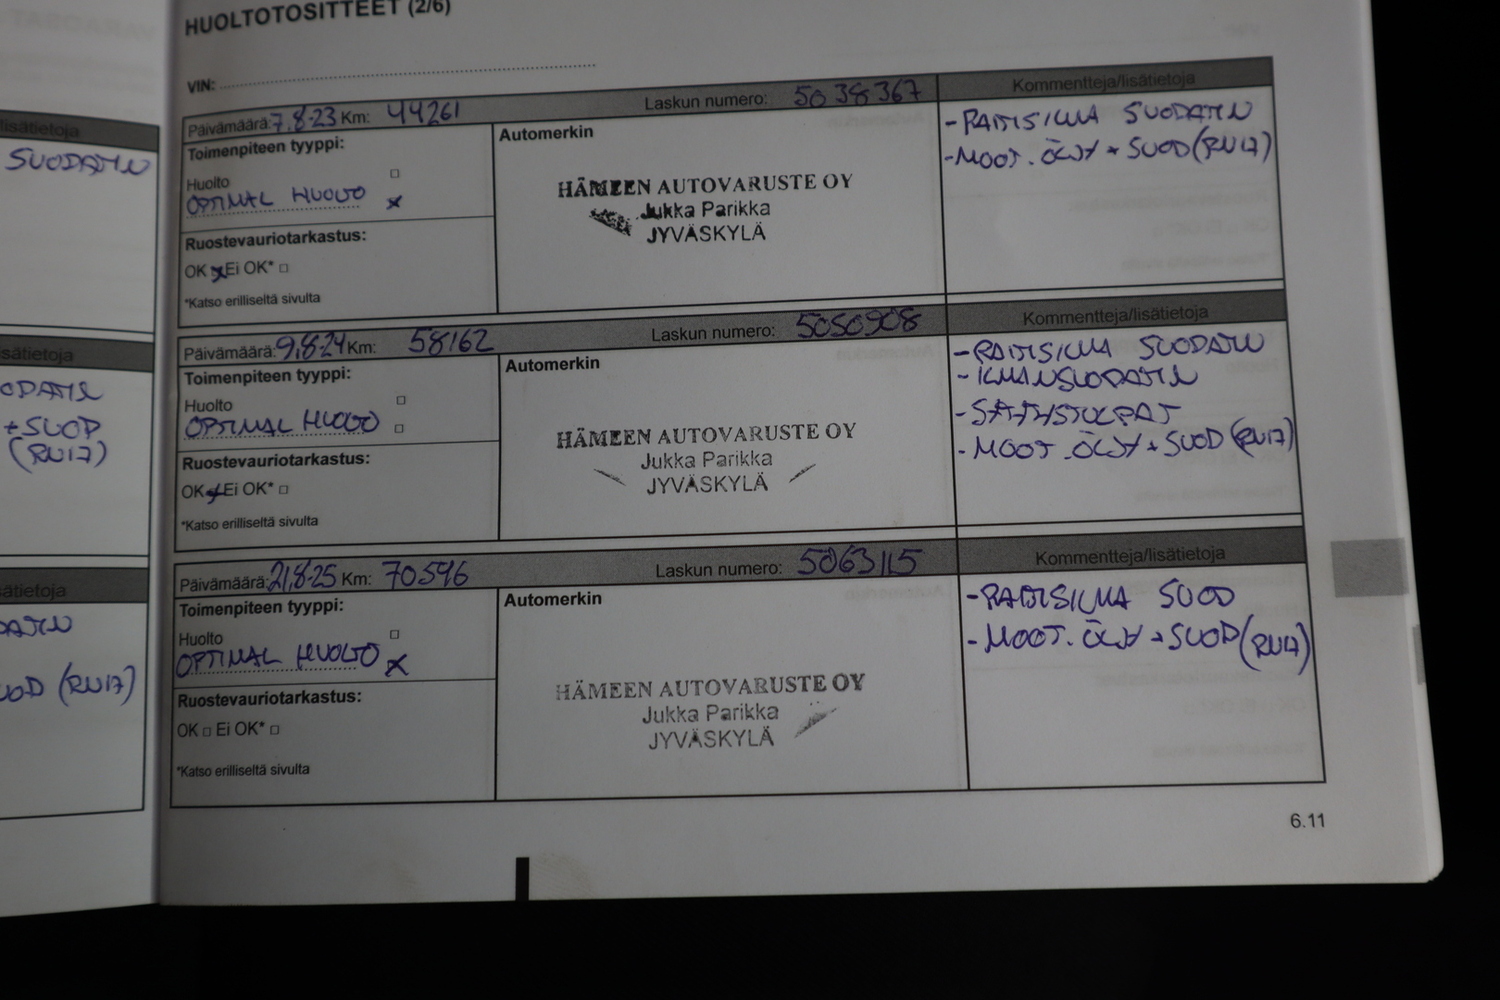 lisätietoja
SUODATIN
isätietoja
ODATIN
+SUOD
(RN17)
sätietoja
DATIN
UOD (RN17)
HUOLTOTOSITTEET (2/6)
VIN:
Päivämäärä: 7.8-23 Km: 44261 Laskun numero: 5038367 Kommentteja/lisätietoja
Toimenpiteen tyyppi:
Huolto
OPTIMAL HUOLTO x
Ruostevauriotarkastus:
OK x Ei OK*
*Katso erilliseltä sivulta
Automerkin
HÄMEEN AUTOVARUSTE OY
Jukka Parikka
JYVÄSKYLÄ
-RAITISILMA SUODATIN
-MOOT. ÖLJY + SUOD (RN17)
Päivämäärä: 9.8-24 Km: 58162 Laskun numero: 5050908 Kommentteja/lisätietoja
Toimenpiteen tyyppi:
Huolto
OPTIMAL HUOLTO
Ruostevauriotarkastus:
OK x Ei OK*
*Katso erilliseltä sivulta
Automerkin
HÄMEEN AUTOVARUSTE OY
Jukka Parikka
JYVÄSKYLÄ
-RAITISILMA SUODATIN
-ILMANSUODATIN
-SYTYTYSTULPAT
-MOOT. ÖLJY + SUOD (RN17)
Päivämäärä: 21.8-25 Km: 70546 Laskun numero: 5063115 Kommentteja/lisätietoja
Toimenpiteen tyyppi:
Huolto
OPTIMAL HUOLTO x
Ruostevauriotarkastus:
OK Ei OK*
*Katso erilliseltä sivulta
Automerkin
HÄMEEN AUTOVARUSTE OY
Jukka Parikka
JYVÄSKYLÄ
-RAITISILMA SUOD
-MOOT. ÖLJY + SUOD (RN17)
6.11